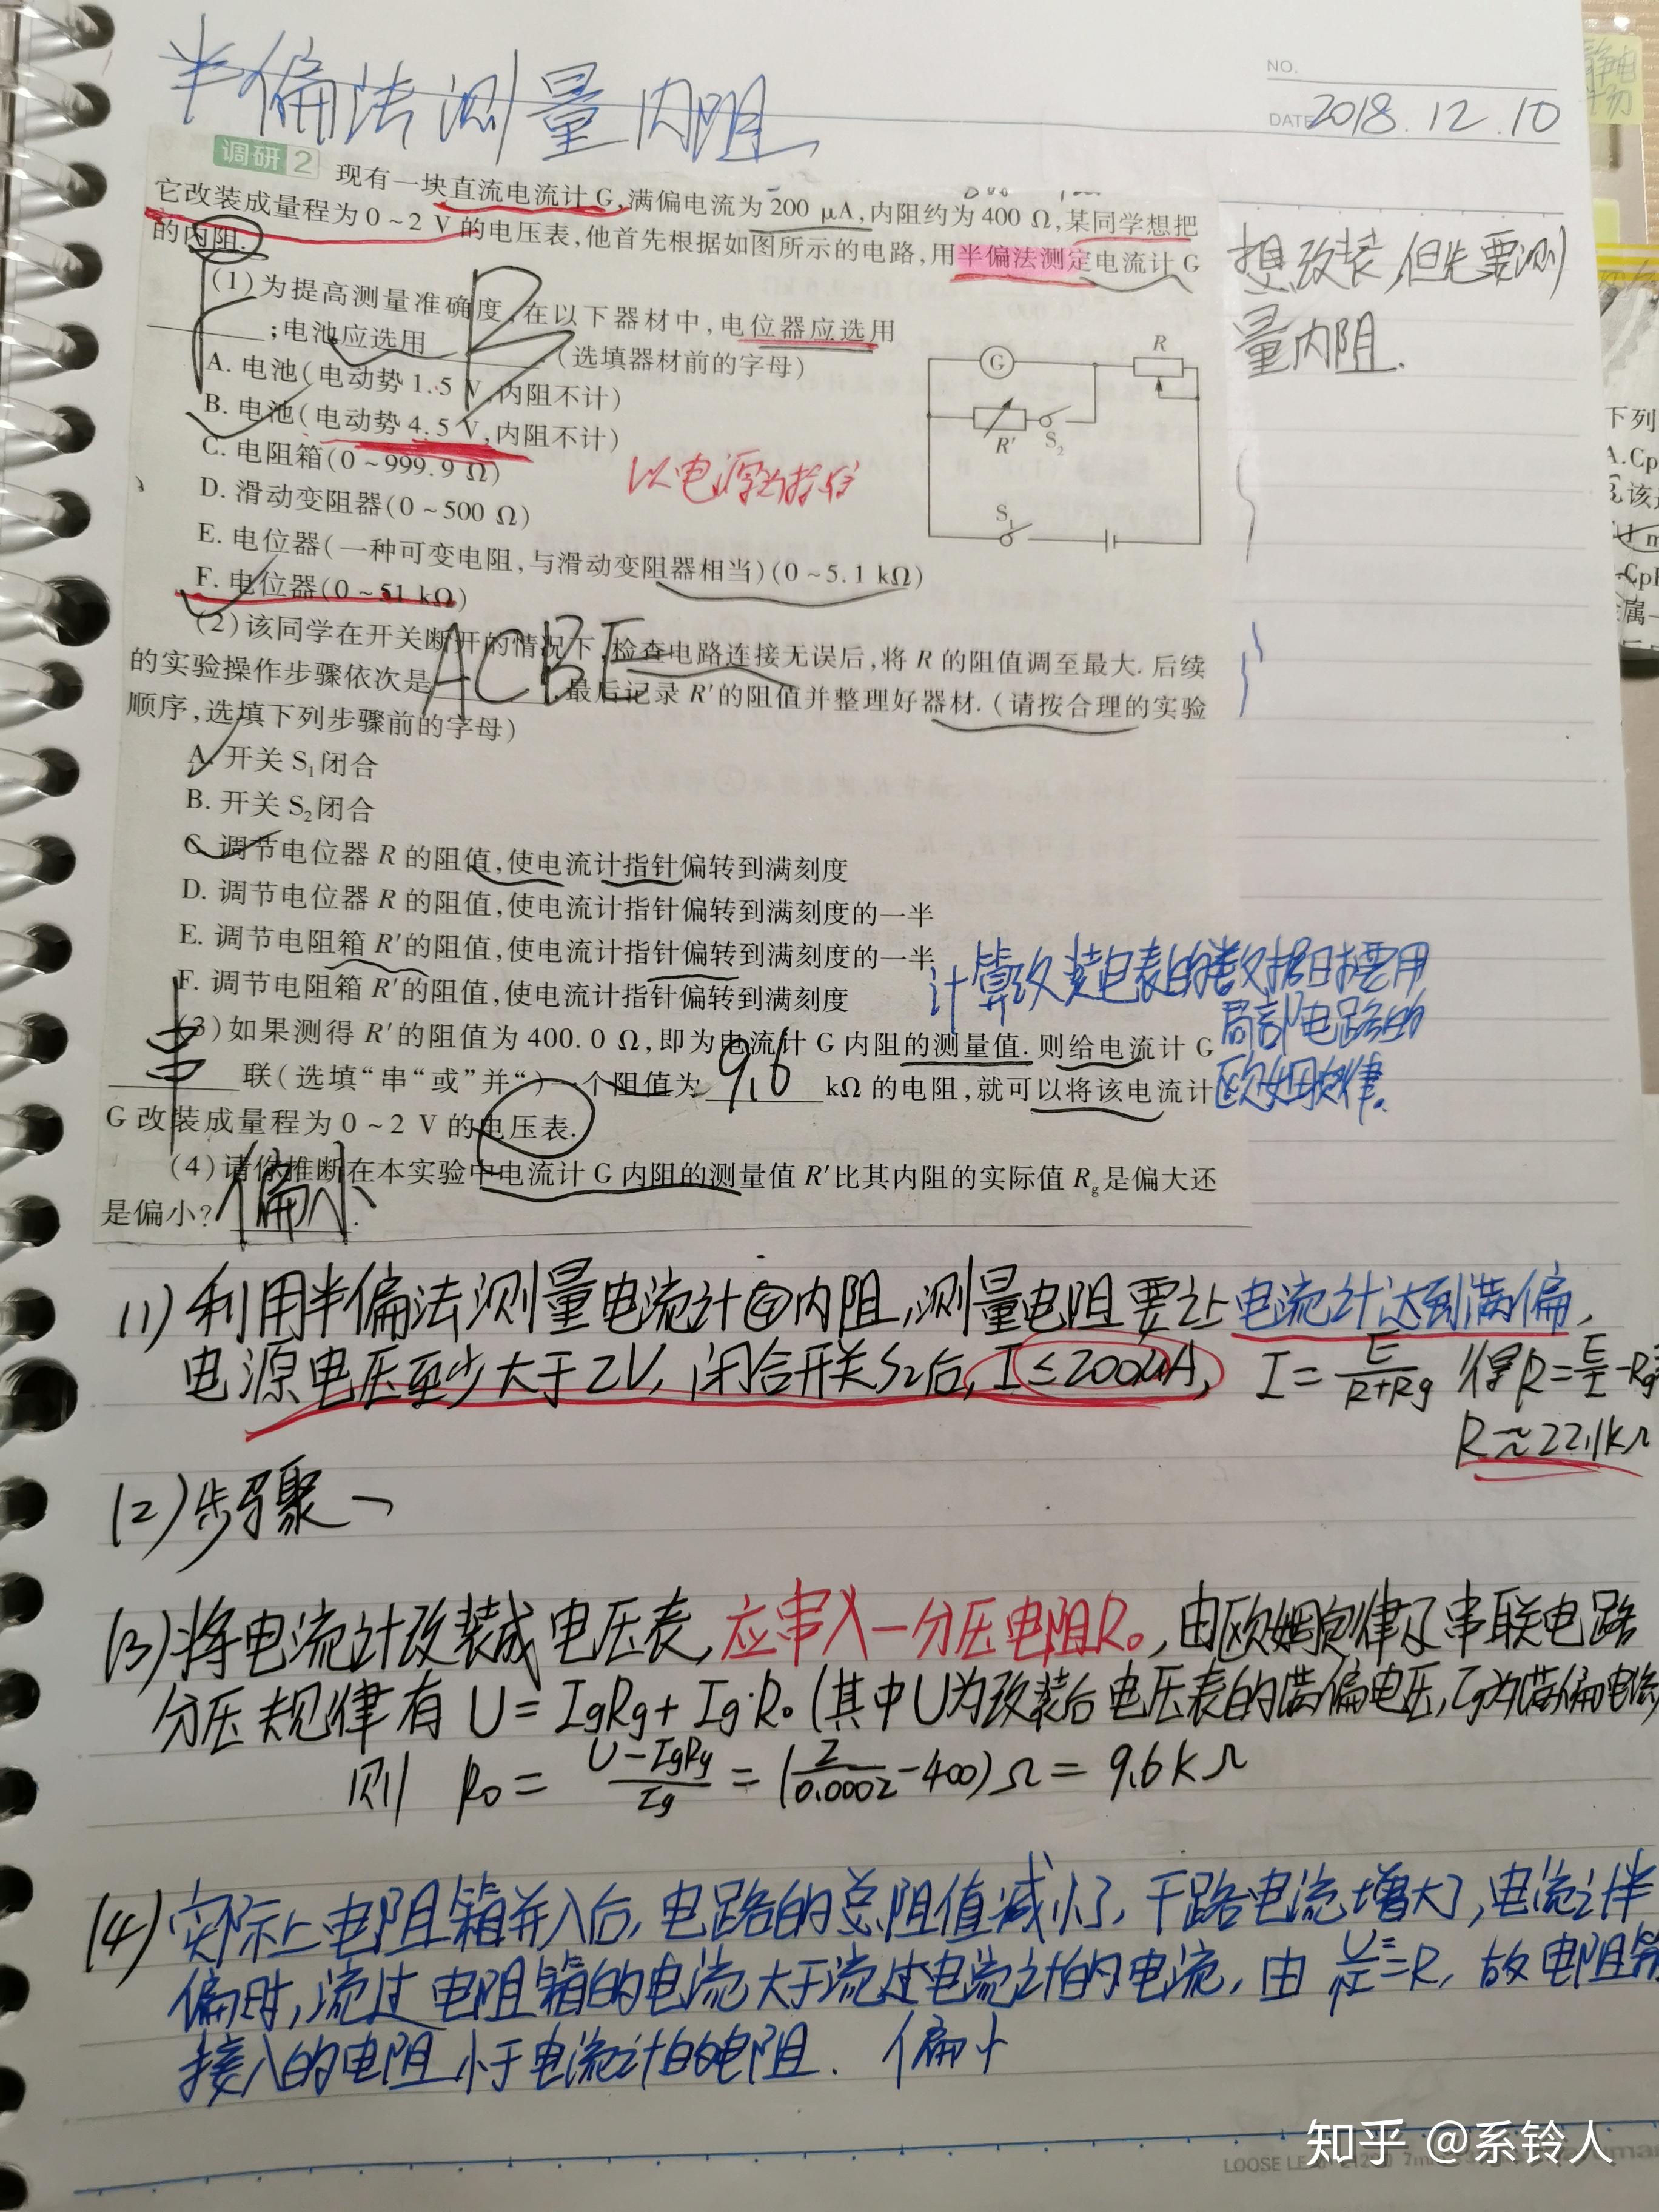 半偏法测量内阻
NO.
DATE 2018.12.10
调研2 现有一块直流电流计G,满偏电流为200 μA,内阻约为400 Ω,某同学想把
它改装成量程为0~2 V的电压表,他首先根据如图所示的电路,用半偏法测定电流计G
的内阻.
想改装,但先要测
量内阻.
(1)为提高测量准确度,在以下器材中,电位器应选用
F;电池应选用B.(选填器材前的字母)
A. 电池(电动势1.5 V,内阻不计)
B. 电池(电动势4.5 V,内阻不计)
C. 电阻箱(0~999.9 Ω)
D. 滑动变阻器(0~500 Ω)
E. 电位器(一种可变电阻,与滑动变阻器相当)(0~5.1 kΩ)
F. 电位器(0~51 kΩ)
G
R
R′
S₂
S₁
以电源为
(2)该同学在开关断开的情况下,检查电路连接无误后,将R的阻值调至最大.后续
的实验操作步骤依次是ACBE,最后记录R′的阻值并整理好器材.(请按合理的实验
顺序,选填下列步骤前的字母)
A. 开关S₁闭合
B. 开关S₂闭合
C. 调节电位器R的阻值,使电流计指针偏转到满刻度
D. 调节电位器R的阻值,使电流计指针偏转到满刻度的一半
E. 调节电阻箱R′的阻值,使电流计指针偏转到满刻度的一半
F. 调节电阻箱R′的阻值,使电流计指针偏转到满刻度
计算改装电表的数据时要用
局部电路的
欧姆定律.
(3)如果测得R′的阻值为400.0 Ω,即为电流计G内阻的测量值.则给电流计G
串联(选填“串“或”并“)一个阻值为9.6kΩ的电阻,就可以将该电流计
G改装成量程为0~2 V的电压表.
(4)请你推断在本实验中电流计G内阻的测量值R′比其内阻的实际值Rg是偏大还
是偏小?偏小.
(1)利用半偏法测量电流计G内阻,测量电阻要让电流计达到满偏,
电源电压至少大于2V,闭合开关S₂后,I≤200μA, I=E/(R+Rg) 得R=E/I-Rg
R≈22.1kΩ
(2)步骤、
(3)将电流计改装成电压表,应串入一分压电阻R₀,由欧姆定律及串联电路
分压规律有 U=IgRg+Ig·R₀(其中U为改装后电压表的满偏电压,Ig为满偏电流
则 R₀=(U-IgRg)/Ig=(2/0.0002-400)Ω=9.6kΩ
(4)实际上电阻箱并入后,电路的总阻值减小了,干路电流增大了,电流计半
偏时,流过电阻箱的电流大于流过电流计的电流,由 =R,故电阻箱
接入的电阻小于电流计的电阻. 偏小
知乎 @系铃人
LOOSE LEAF
下列
A.Cp